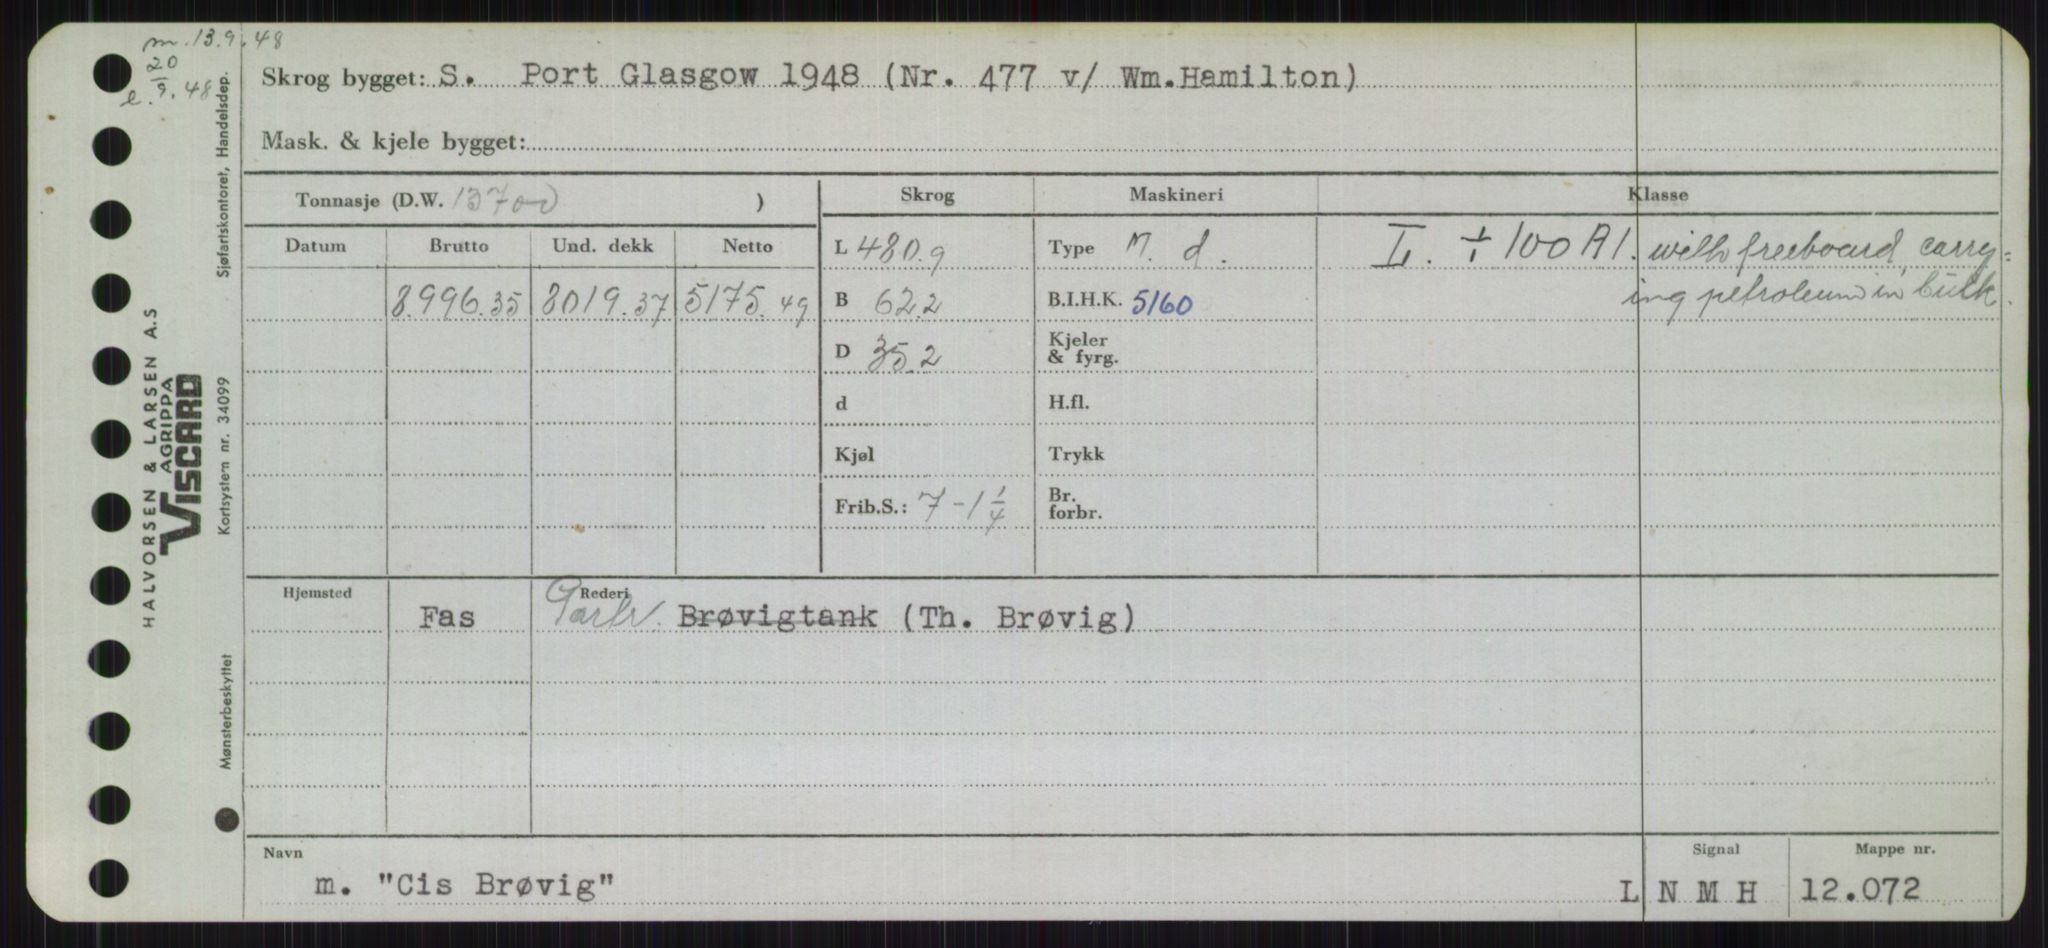 m. 13.9.48
e. 20/9.48
Skrog bygget: S. Port Glasgow 1948 (Nr. 477 v/ Wm.Hamilton)
Mask. & kjele bygget:
Tonnasje (D.W. 13700 )
Skrog Maskineri Klasse
Datum Brutto Und. dekk Netto
L 480.9 Type M. d. L. + 100 A1. with freeboard, carry=
8.996.35 8019.37 5175.49 B 62.2 B.I.H.K. 5160 ing petroleum in bulk.
D 35.2 Kjeler
& fyrg.
d H.fl.
Kjøl Trykk
Frib.S.: 7-1 1/4 Br.
forbr.
Hjemsted Rederi
Fas Partr. Brøvigtank (Th. Brøvig)
Navn Signal Mappe nr.
m. "Cis Brøvig" L N M H 12.072
HALVORSEN & LARSEN A.S
AGRIPPA
VISCARD
Mønsterbeskyttet Kortsystem nr. 34099 Sjøfartskontoret, Handelsdep.